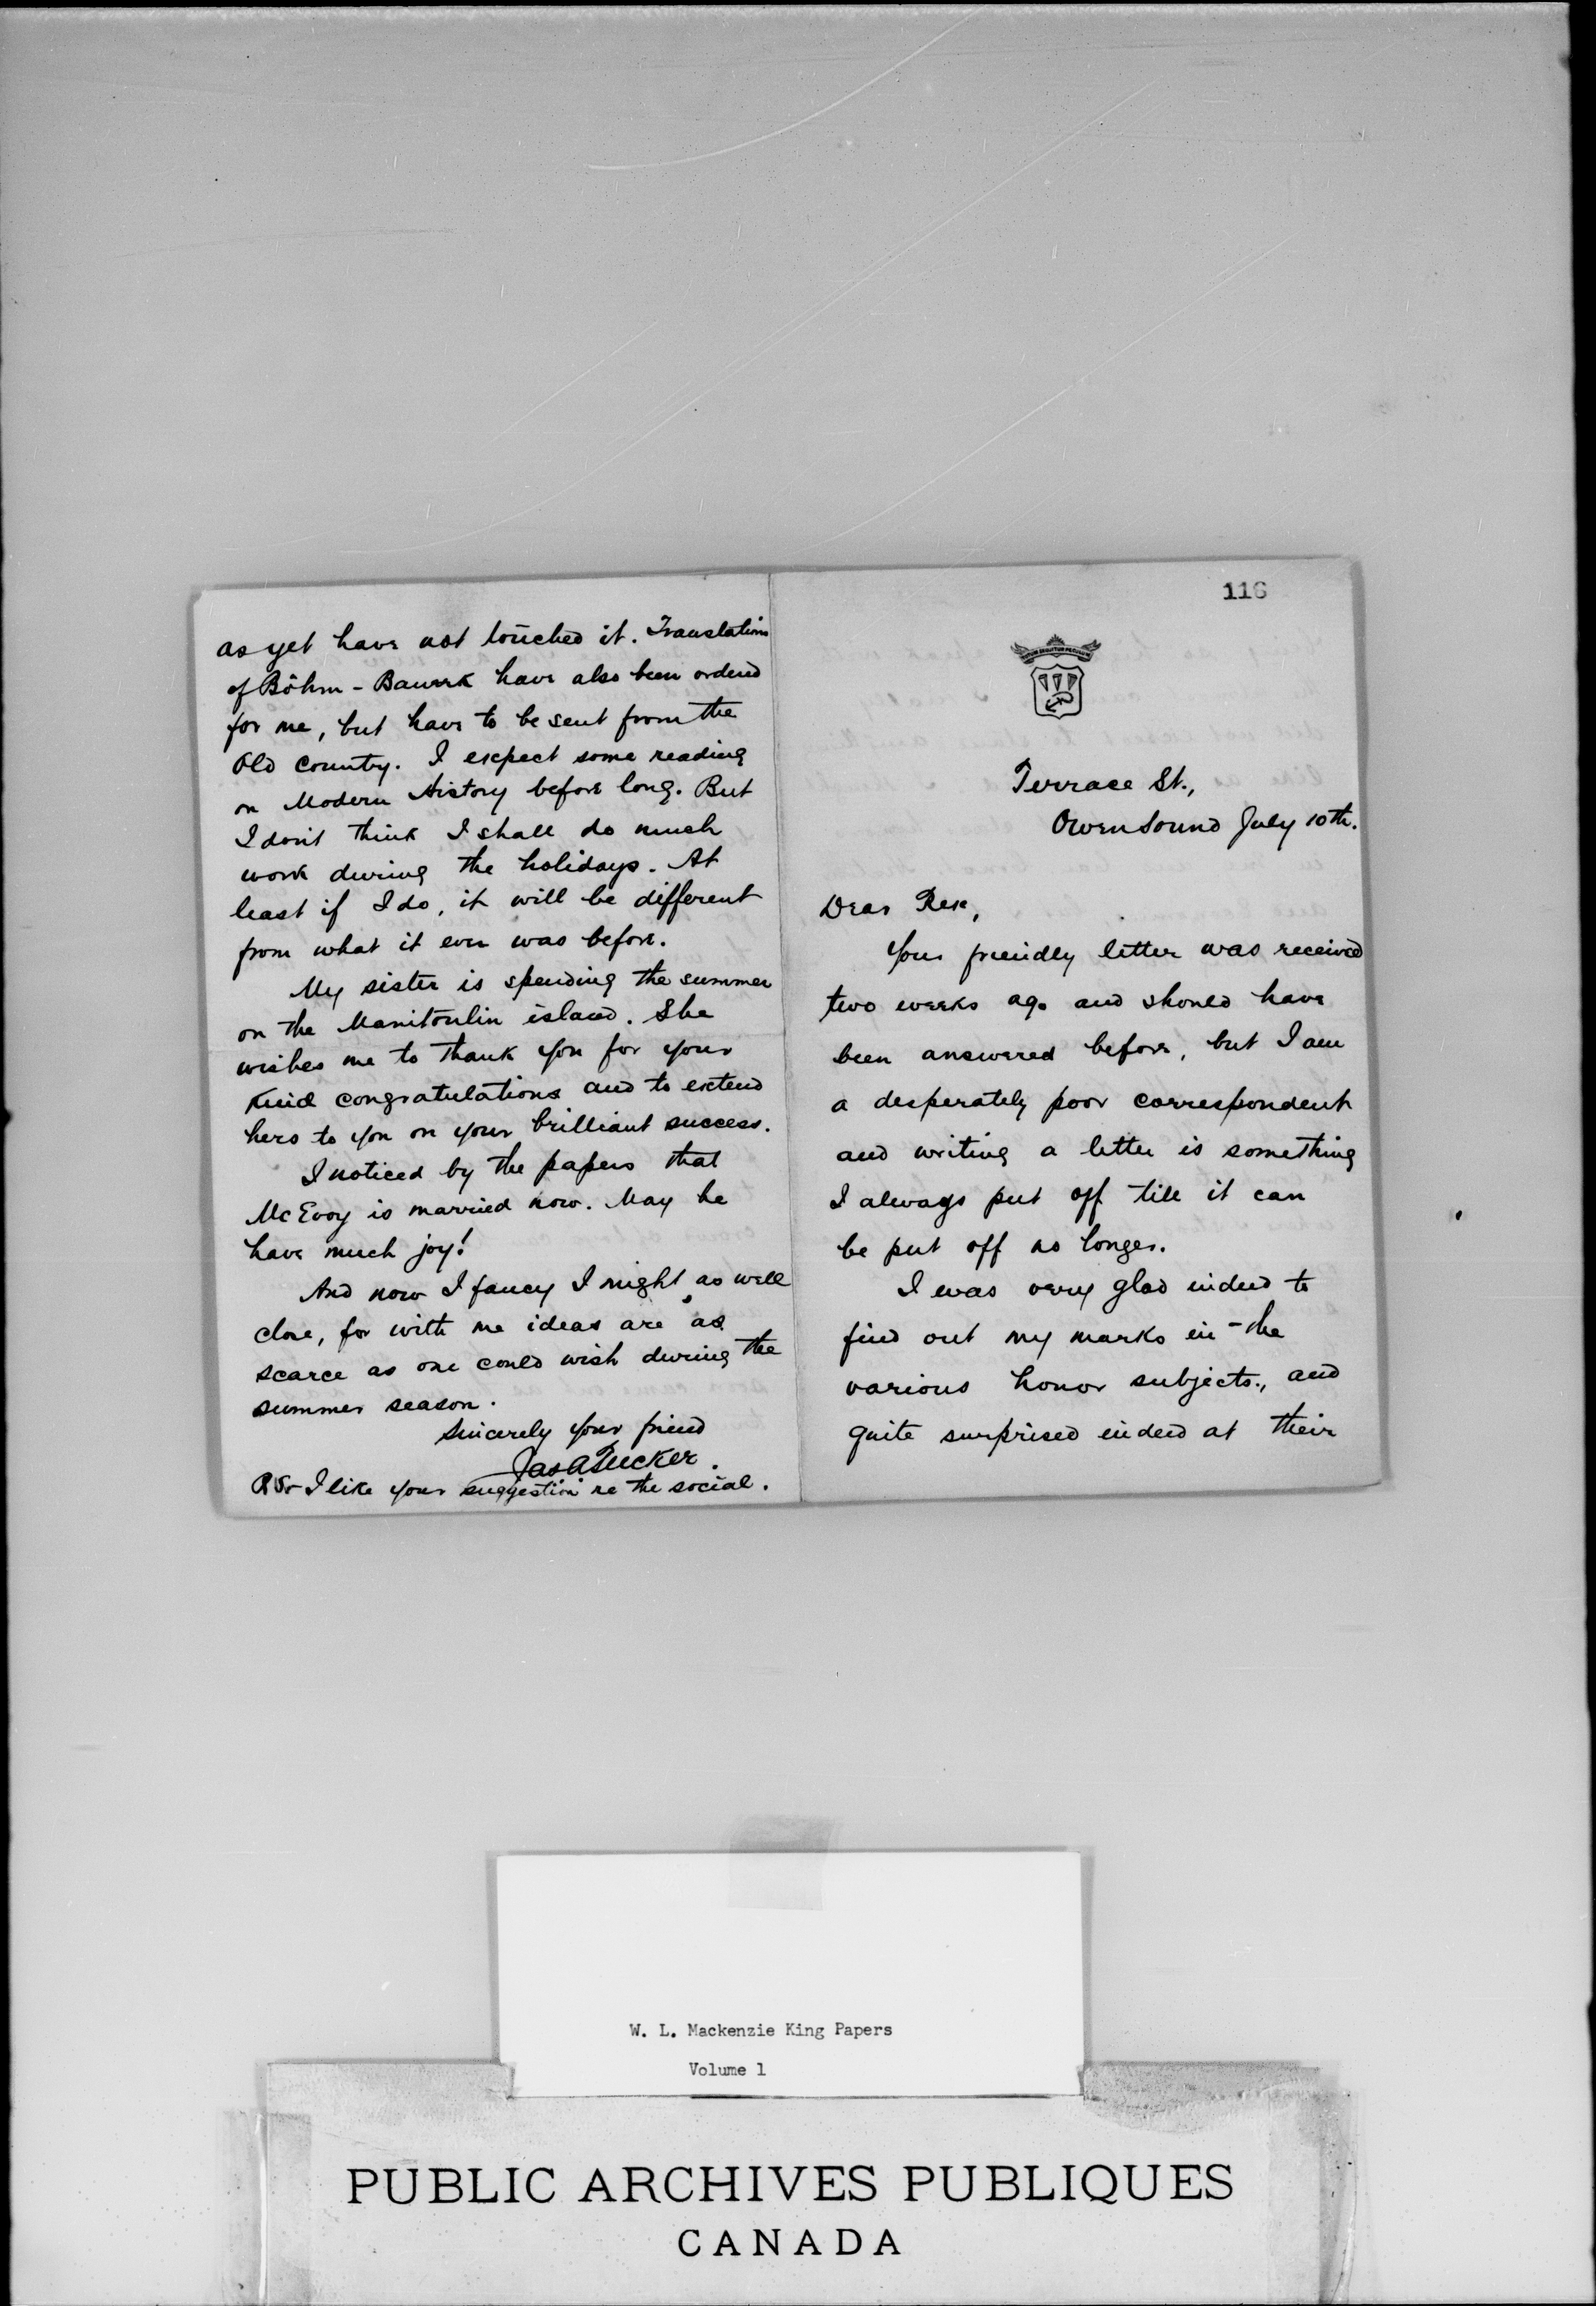 as yet have not touched it. Translations
of Böhm-Bawerk have also been ordered
for me, but have to be sent from the
Old Country. I expect some reading
on Modern History before long. But
I don't think I shall do much
work during the holidays. At
least if I do, it will be different
from what it ever was before.
My sister is spending the summer
on the Manitoulin island. She
wishes me to thank you for your
kind congratulations and to extend
hers to you on your brilliant success.
I noticed by the papers that
McEvoy is married now. May he
have much joy!
And now I fancy I might as well
close, for with me ideas are as
scarce as one could wish during the
summer season.
Sincerely your friend
Jas A Tucker.
P.S. I like your suggestion re the social.
116
Terrace St.,
Owen Sound July 10th.
Dear Rex,
Your friendly letter was received
two weeks ago and should have
been answered before, but I am
a desperately poor correspondent
and writing a letter is something
I always put off till it can
be put off no longer.
I was very glad indeed to
find out my marks in the
various honor subjects., and
quite surprised indeed at their
W. L. Mackenzie King Papers
Volume 1
PUBLIC ARCHIVES PUBLIQUES
CANADA